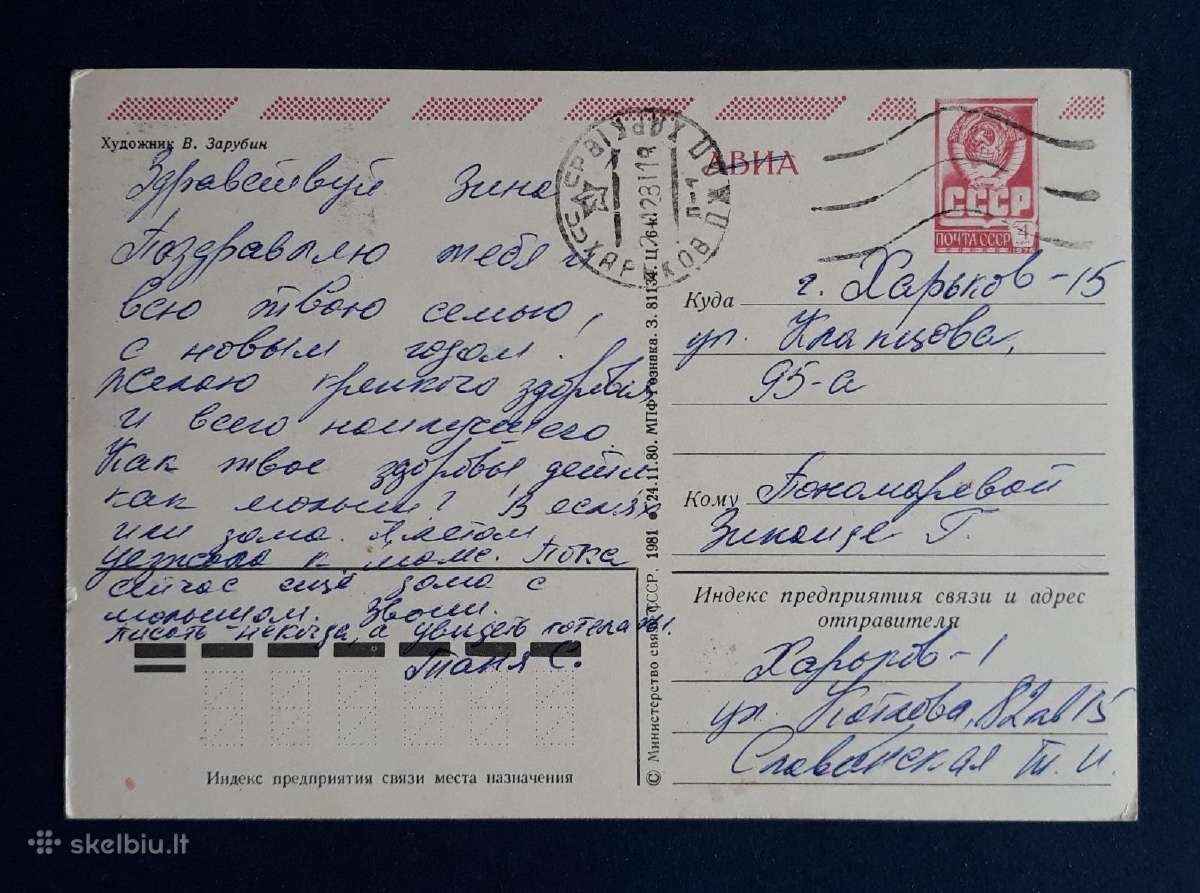 Художник В. Зарубин
АВИА
СССР
ПОЧТА СССР
4
1978
Здравствуй Зина
Поздравляю тебя и
всю твою семью,
с новым годом!
Желаю крепкого здоровья
и всего наилучшего.
Как твое здоровье, дети
как малыши?
или дома. Я летом
уезжала к маме. Пока
сейчас ещё дома с
малышом. Звони.
писать некогда, а увидеть хотела бы.
Таня С.
Куда г. Харьков-15
ул. Клапцова,
95-а
Кому Пономаревой
Зинаиде Г.
Индекс предприятия связи и адрес
отправителя
Харьков-1
ул Котлова, 82 кв 15
Славянская Т. И.
Индекс предприятия связи места назначения
© Министерство связи СССР. 1981 ● 24.11.80. МПФ Гознака. З. 81134. Ц. 6 к.
ХАРЬКОВ
skelbiu.lt